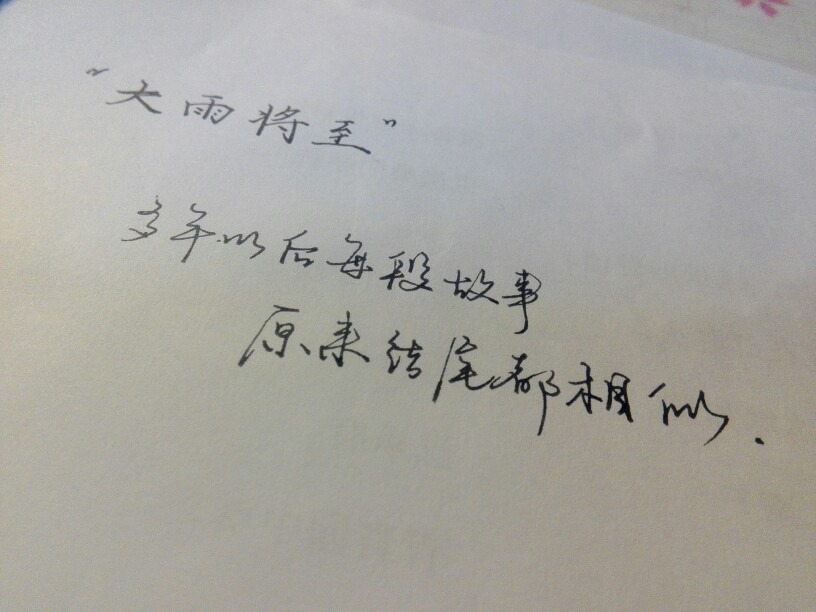 “大雨将至”
多年以后每段故事
原来结尾都相似.